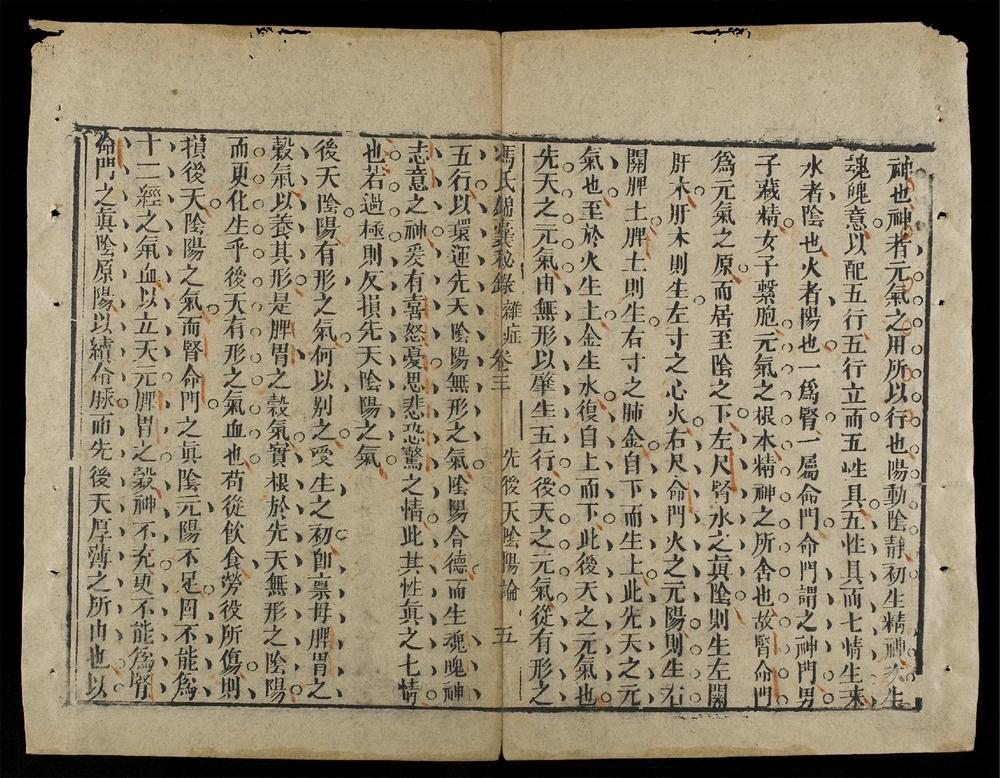 神也神者元氣之用所以行也陽動陰靜初生精神次生
魂魄意以配五行五行立而五性具五性具而七情生來
水者陰也火者陽也一爲腎一屬命門命門謂之神門男
子藏精女子繫胞元氣之根本精神之所舍也故腎命門
爲元氣之原而居至陰之下左尺腎水之眞陰則生左關
肝木肝木則生左寸之心火右尺命門火之元陽則生右
關脾土脾土則生右寸之肺金自下而生上此先天之元
氣也至於火生土金生水復自上而下此後天之元氣也
先天之元氣由無形以肇生五行後天之元氣從有形之
馮氏錦囊秘錄 雜症 卷三 先後天陰陽論 五
五行以環運先天陰陽無形之氣陰陽合德而生魂魄神
志意之神爰有喜怒憂思悲恐驚之情此其性眞之七情
也若過極則反損先天陰陽之氣
後天陰陽有形之氣何以别之受生之初卽禀母脾胃之
穀氣以養其形是脾胃之穀氣實根於先天無形之陰陽
而更化生乎後天有形之氣血也苟從飲食勞役所傷則
損後天陰陽之氣而腎命門之眞陰元陽不足固不能爲
十二經之氣血以立天元脾胃之穀神不充更不能爲腎
命門之眞陰原陽以續命脉而先後天厚薄之所由也以